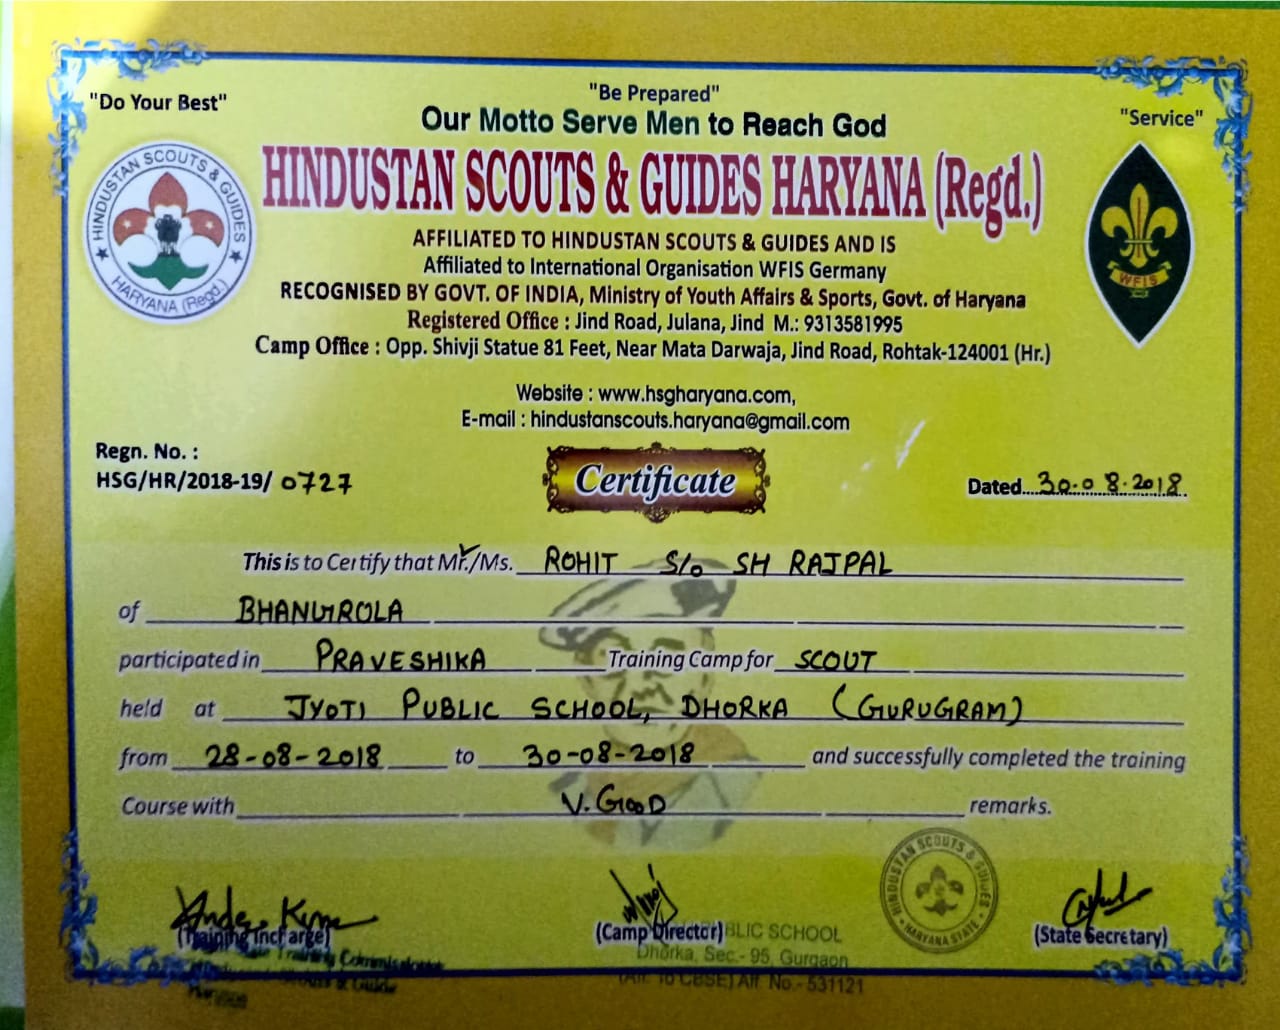 "Be Prepared"
"Do Your Best"
Our Motto Serve Men to Reach God
"Service"
HINDUSTAN SCOUTS & GUIDES HARYANA (Regd.)
HINDUSTAN SCOUTS & GUIDES
HARYANA (Regd.)
WFIS
AFFILIATED TO HINDUSTAN SCOUTS & GUIDES AND IS
Affiliated to International Organisation WFIS Germany
RECOGNISED BY GOVT. OF INDIA, Ministry of Youth Affairs & Sports, Govt. of Haryana
Registered Office : Jind Road, Julana, Jind M.: 9313581995
Camp Office : Opp. Shivji Statue 81 Feet, Near Mata Darwaja, Jind Road, Rohtak-124001 (Hr.)
Website : www.hsgharyana.com,
E-mail : hindustanscouts.haryana@gmail.com
Regn. No. :
HSG/HR/2018-19/ 0727
Certificate
Dated 30.08.2018
This is to Certify that Mr./Ms. ROHIT S/o SH RAJPAL
of BHANGROLA
participated in PRAVESHIKA Training Camp for SCOUT
held at JYOTI PUBLIC SCHOOL, DHORKA (GURUGRAM)
from 28-08-2018 to 30-08-2018 and successfully completed the training
Course with V. GOOD remarks.
HINDUSTAN SCOUTS & GUIDES
HARYANA STATE
(Training Incharge)
(Camp Director)
(State Secretary)
BLIC SCHOOL
Dhorka, Sec.- 95, Gurgaon
(Aff. To CBSE) Aff No.- 531121
Training Commissioner
& Guide